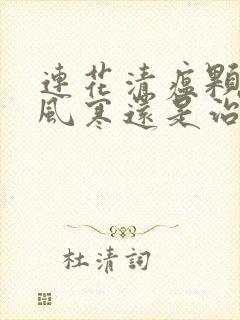 連花清瘟顆
風寒還是治
杜清詞